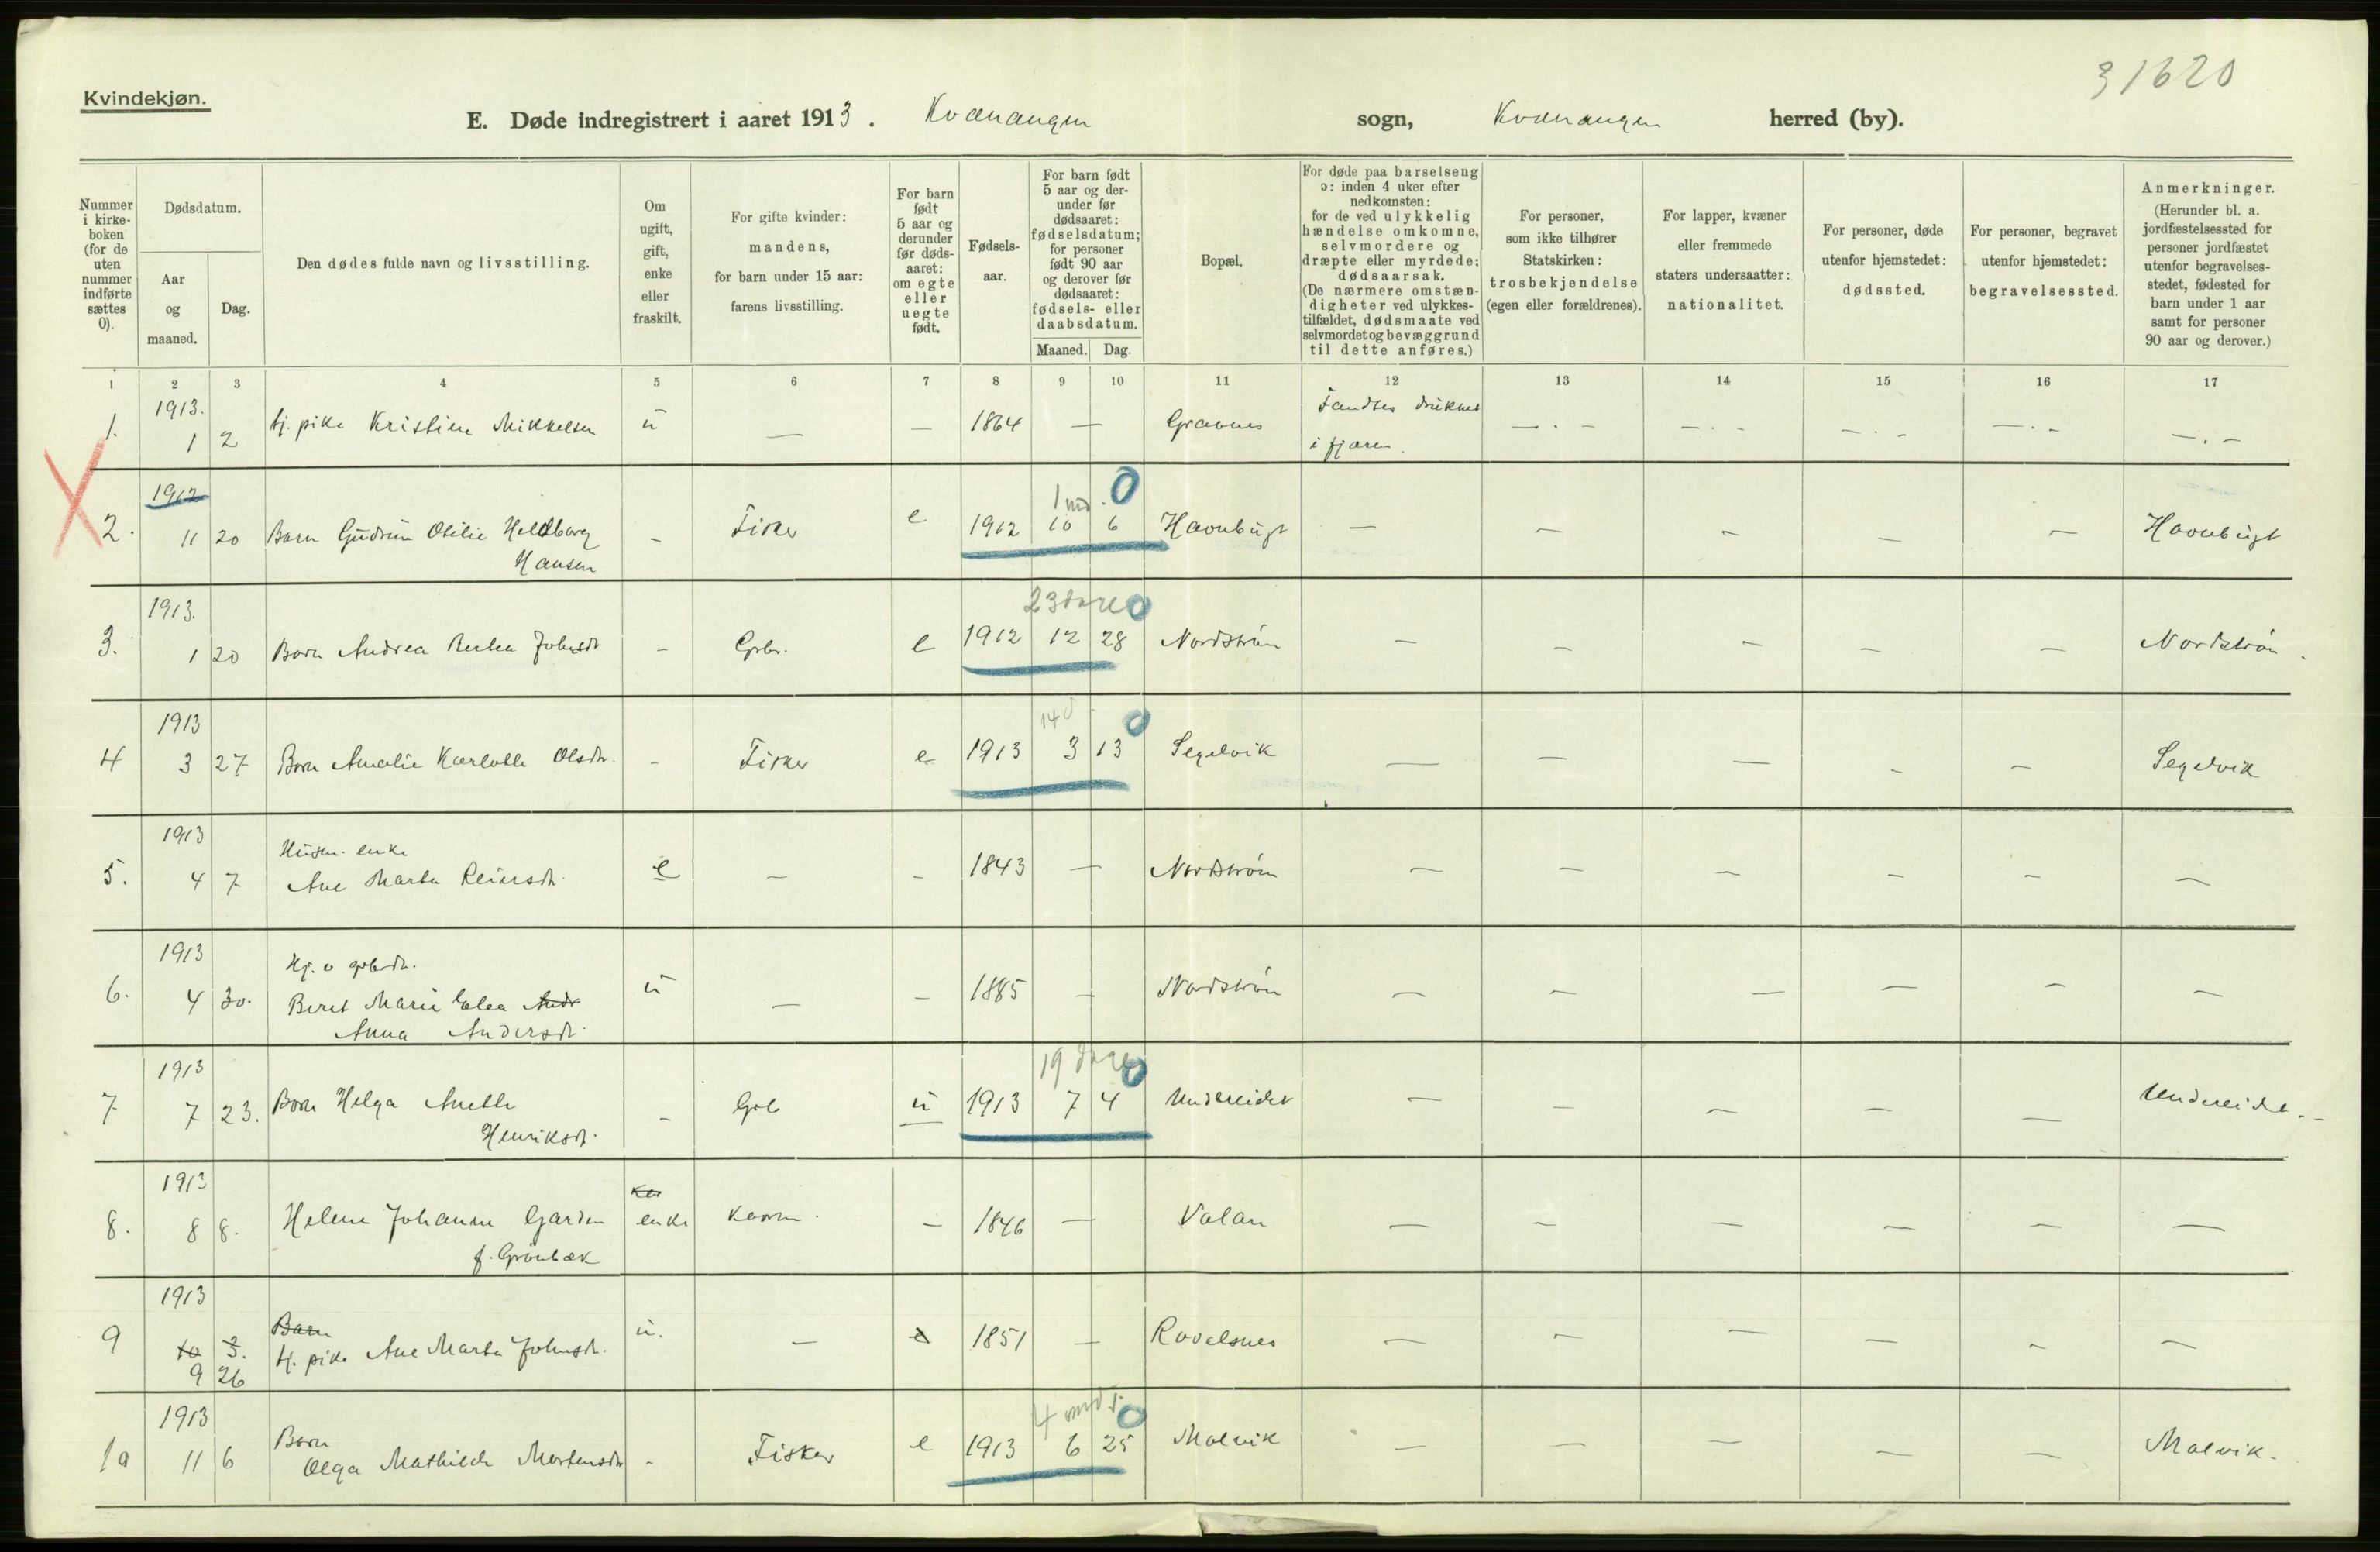 31620
Kvindekjøn.
E. Døde indregistrert i aaret 1913. Kvænangen sogn, Kvænangen herred (by).
Nummer i kirke-boken (for de uten nummer indførte sættes 0).
Dødsdatum.
Aar og maaned.
Dag.
Den dødes fulde navn og livsstilling.
Om ugift, gift, enke eller fraskilt.
For gifte kvinder: mandens, for barn under 15 aar: farens livsstilling.
For barn født 5 aar og derunder før døds-aaret: om egte eller uegte født.
Fødsels-aar.
For barn født 5 aar og der-under før dødsaaret: fødselsdatum; for personer født 90 aar og derover før dødsaaret: fødsels- eller daabsdatum.
Maaned. Dag.
Bopæl.
For døde paa barselseng ɔ: inden 4 uker efter nedkomsten: for de ved ulykkelig hændelse omkomne, selvmordere og dræpte eller myrdede: dødsaarsak. (De nærmere omstæn-digheter ved ulykkes-tilfældet, dødsmaate ved selvmordet og bevæggrund til dette anføres.)
For personer, som ikke tilhører Statskirken: trosbekjendelse (egen eller forældrenes).
For lapper, kvæner eller fremmede staters undersaatter: nationalitet.
For personer, døde utenfor hjemstedet: dødssted.
For personer, begravet utenfor hjemstedet: begravelsessted.
Anmerkninger. (Herunder bl. a. jordfæstelsessted for personer jordfæstet utenfor begravelses-stedet, fødested for barn under 1 aar samt for personer 90 aar og derover.)
1 2 3 4 5 6 7 8 9 10 11 12 13 14 15 16 17
1913.
1. 1 2 tj. pike Kristine Mikkelsen u — — 1864 — Gravnes Fandtes druknet
i fjæren. —.— —.— —.— —.— —.—
1912 1 md. 0
2. 11 20 Barn Gudrun Otilie Heldborg - Fisker e 1912 10 6 Havnbugt — — — — — Havnbugt
Hansen
1913. 23 dage 0
3. 1 20 Barn Andrea Berthea Johnsdtr - Grbr. e 1912 12 28 Nordström — — — — — Nordström.
1913 14 d 0
4 3 27 Barn Amalie Karlotte Olsdtr. - Fisker e 1913 3 13 Segelvik — — — — — Segelvik
1913 Husm. enke
5. 4 7 Ane Marta Reiersdtr. e — - 1843 — Nordström — — — — — —
1913 Hj. v. grbrdtr.
6. 4 30. Beret Marie Elea Andr u — - 1885 — Nordström — — — — — —
Anna Andersdtr.
1913 19 dage 0
7 7 23. Barn Helga Anette - Grb u 1913 7 4 Undereidet — — — — — Undereidet.
Henriksdtr.
1913
8. 8 8. Helene Johanne Garden enke - 1846 — Valan — — — — — —
f. Grönbæk
1913 Barn
9 10 3. tj. pike Ane Marta Johnsdtr. u. — e 1851 — — — — — — —
9 26
1913 4 mdr 0
10 11 6 Barn
Olga Mathilde Mortensdtr - Fisker e 1913 6 25 Malvik — — — — — Malvik.